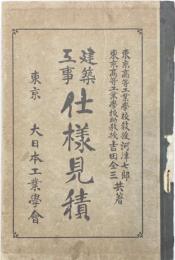 東京高等工業學校教授河津七郎
東京高等工業學校助教授吉田全三 共著
建築工事 仕様見積
東京 大日本工業學會